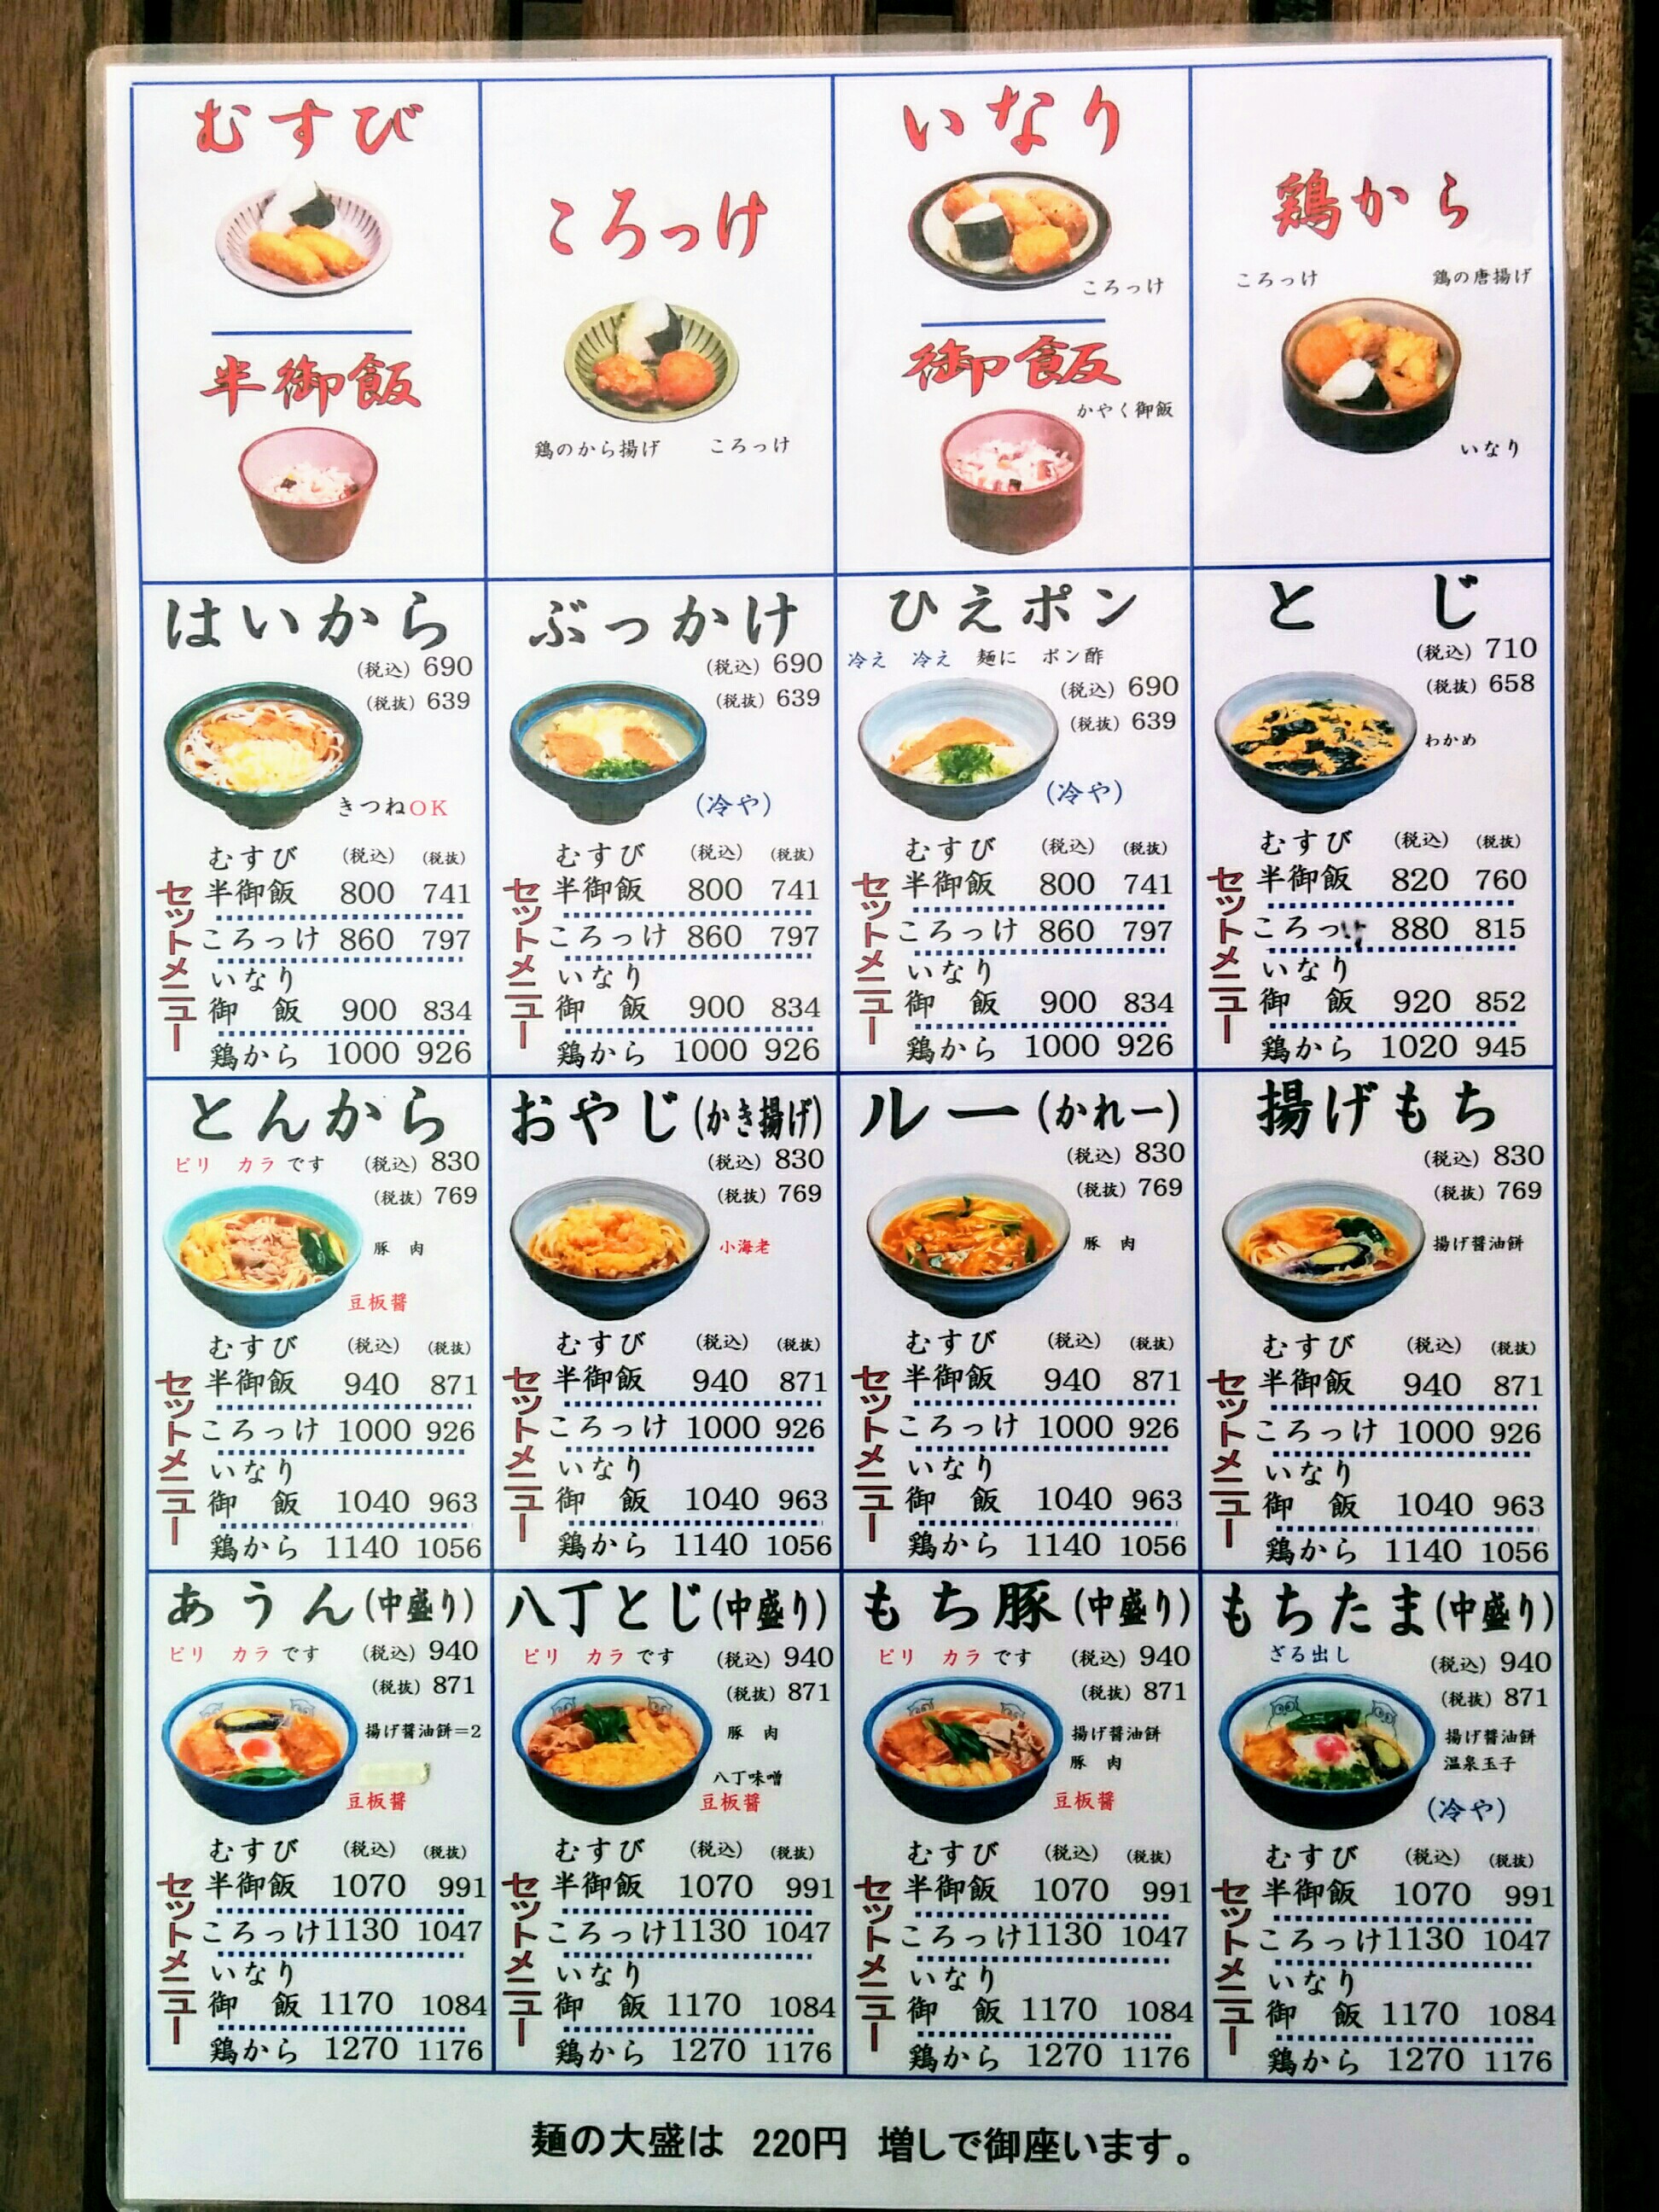 むすび
半御飯
ころっけ
鶏のから揚げ ころっけ
いなり
ころっけ
御飯
かやく御飯
鶏から
ころっけ 鶏の唐揚げ
いなり
はいから
(税込) 690
(税抜) 639
きつねOK
セットメニュー
むすび (税込) (税抜)
半御飯 800 741
ころっけ 860 797
いなり
御 飯 900 834
鶏から 1000 926
ぶっかけ
(税込) 690
(税抜) 639
(冷や)
セットメニュー
むすび (税込) (税抜)
半御飯 800 741
ころっけ 860 797
いなり
御 飯 900 834
鶏から 1000 926
ひえポン
冷え 冷え 麺に ポン酢
(税込) 690
(税抜) 639
(冷や)
セットメニュー
むすび (税込) (税抜)
半御飯 800 741
ころっけ 860 797
いなり
御 飯 900 834
鶏から 1000 926
と じ
(税込) 710
(税抜) 658
わかめ
セットメニュー
むすび (税込) (税抜)
半御飯 820 760
ころっけ 880 815
いなり
御 飯 920 852
鶏から 1020 945
とんから
ピリ カラです (税込) 830
(税抜) 769
豚 肉
豆板醤
セットメニュー
むすび (税込) (税抜)
半御飯 940 871
ころっけ 1000 926
いなり
御 飯 1040 963
鶏から 1140 1056
おやじ(かき揚げ)
(税込) 830
(税抜) 769
小海老
セットメニュー
むすび (税込) (税抜)
半御飯 940 871
ころっけ 1000 926
いなり
御 飯 1040 963
鶏から 1140 1056
ルー(かれー)
(税込) 830
(税抜) 769
豚 肉
セットメニュー
むすび (税込) (税抜)
半御飯 940 871
ころっけ 1000 926
いなり
御 飯 1040 963
鶏から 1140 1056
揚げもち
(税込) 830
(税抜) 769
揚げ醤油餅
セットメニュー
むすび (税込) (税抜)
半御飯 940 871
ころっけ 1000 926
いなり
御 飯 1040 963
鶏から 1140 1056
あうん(中盛り)
ピリ カラです (税込) 940
(税抜) 871
揚げ醤油餅=2
豆板醤
セットメニュー
むすび (税込) (税抜)
半御飯 1070 991
ころっけ1130 1047
いなり
御 飯 1170 1084
鶏から 1270 1176
八丁とじ(中盛り)
ピリ カラです (税込) 940
(税抜) 871
豚 肉
八丁味噌
豆板醤
セットメニュー
むすび (税込) (税抜)
半御飯 1070 991
ころっけ1130 1047
いなり
御 飯 1170 1084
鶏から 1270 1176
もち豚(中盛り)
ピリ カラです (税込) 940
(税抜) 871
揚げ醤油餅
豚 肉
豆板醤
セットメニュー
むすび (税込) (税抜)
半御飯 1070 991
ころっけ1130 1047
いなり
御 飯 1170 1084
鶏から 1270 1176
もちたま(中盛り)
ざる出し (税込) 940
(税抜) 871
揚げ醤油餅
温泉玉子
(冷や)
セットメニュー
むすび (税込) (税抜)
半御飯 1070 991
ころっけ1130 1047
いなり
御 飯 1170 1084
鶏から 1270 1176
麺の大盛は 220円 増しで御座います。